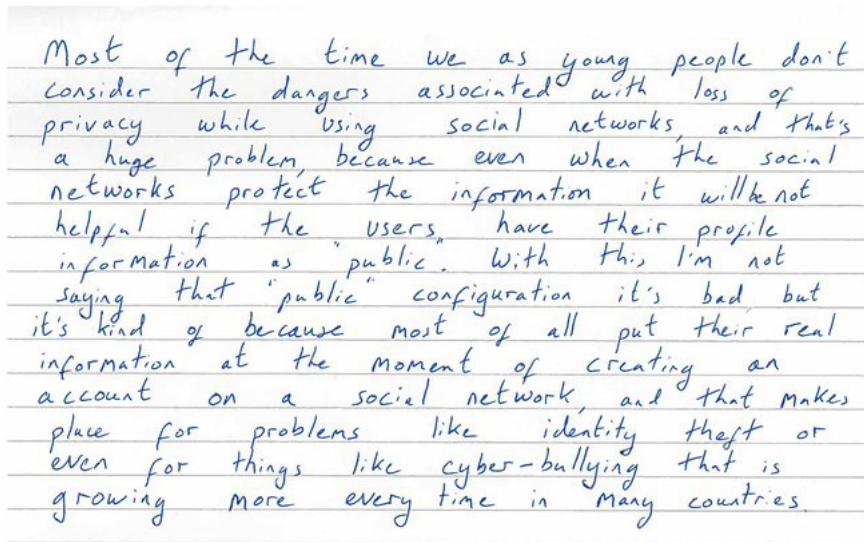 Most of the time we as young people don't
consider the dangers associated with loss of
privacy while using social networks, and that's
a huge problem, because even when the social
networks protect the information it will be not
helpful if the users, have their profile
information as "public". With this I'm not
saying that "public" configuration it's bad, but
it's kind of because most of all put their real
information at the moment of creating an
account on a social network, and that makes
place for problems like identity theft or
even for things like cyber-bullying that is
growing more every time in many countries.